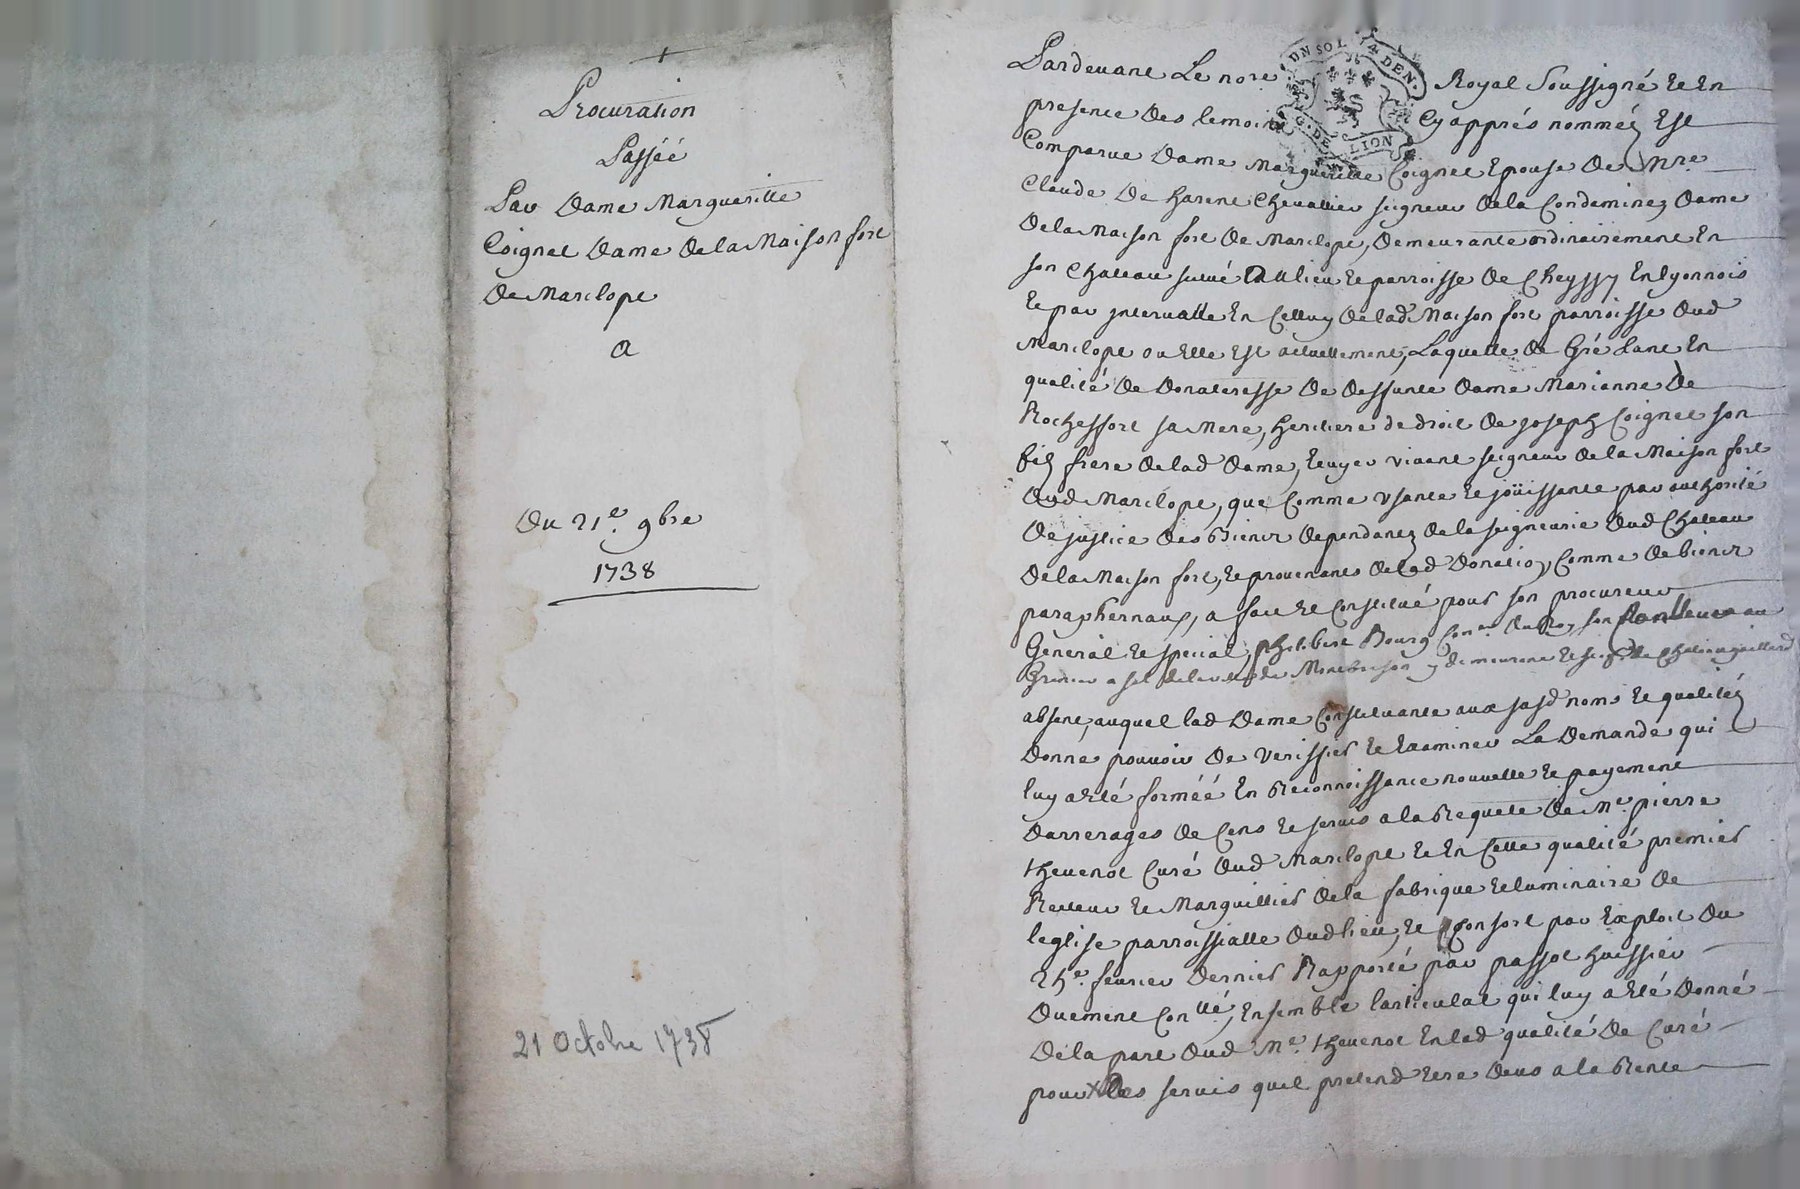 Procuration
Passéé
Par Dame Margueritte
Coignet Dame De la Maison fort
De Marclopt
a
Du 21e. 9bre
1738
21 Octobre 1738
Pardevant Le nore Royal Soussigné Et En
UN SOL 4 DEN.
G. DE LION
presence Des temoins Cy apprés nomméz Est
Comparue Dame Margueritte Coignet Epouse De Mre
Claude De harene Chevallier seigneur De la Condeminez Dame
De la Maison fort De Marclopt, Demeurante ordinairement En
son Chateau situé Au lieu Et parroisse De Cheyssy En lyonnois
Et par jntervalle En Celluy De lad Maison fort parroisse Dud
Marclopt ou Elle Est actuellement, Laquelle De Gré tant En
qualité De Donateresse De Deffunte Dame Marianne De
Rocheffort sa Mere, heritiere de droit De joseph Coignet son
filz frere De lad Dame, Ecuyer vivant seigneur De la Maison fort
Dud Marclopt, que Comme Usante Et joüissante par authorité
De justice Des Biens Dependantz De la seigneurie Dud Chateau
De la Maison fort, Et provenants De lad Donation, Comme De biens
paraphernaux, a fait Et Constitué pour son procureur
General Et special, philibert Bourg Coner. Du Roy son Controlleur au
Grenier a sel de la de Montbrison y demeurant Et seigr de Chateaugaillard
absent, auquel lad Dame Constituante aux susd noms Et qualitéz
Donne pouvoir De Veriffier Et Examiner La Demande qui
luy a Eté forméé En Reconnoissance nouvelle Et payement
Darrerages De Cens Et servis a la Requete De Me. pierre
thevenot Curé Dud Marclopt Et En Cette qualité premier
Recteur Et Marguillier De la fabrique Et luminaire De
leglise parroissialle Dud lieu, Et Consort par Exploit Du
fevrier Dernier Rapporté par passot huissier
Duement Contllé, Ensemble larticulat qui luy a Eté Donné
De la part Dud Me. thevenot En lad qualité De Curé
pour Les servis quil pretend Etre Deus a la Rente